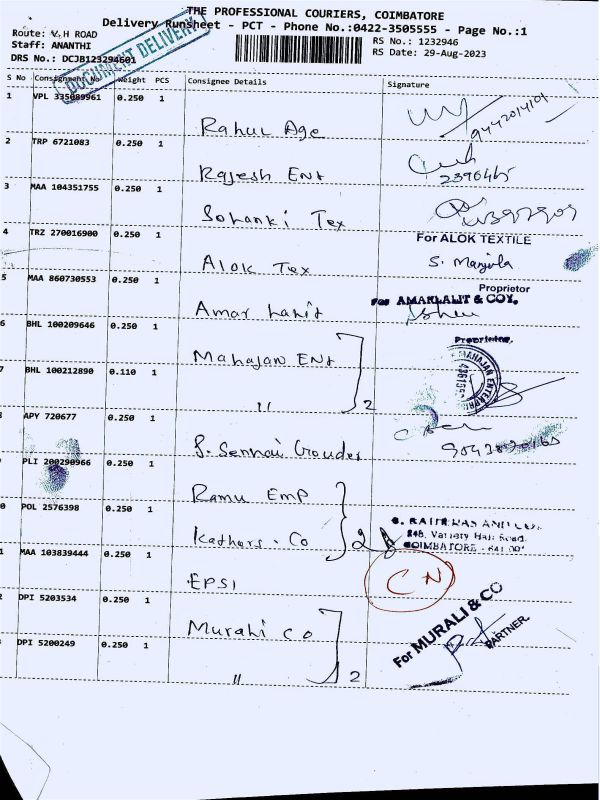 THE PROFESSIONAL COURIERS, COIMBATORE
Delivery Runsheet - PCT - Phone No.:0422-3505555 - Page No.:1
Route: V.H ROAD
Staff: ANANTHI
DRS No.: DCJB123294601
RS No.: 1232946
RS Date: 29-Aug-2023
DOCUMENT DELIVERY
S No Consignment No Weight PCS Consignee Details Signature
1 VPL 335089961 0.250 1 Rahul Age
2 TRP 6721083 0.250 1 Rajesh Ent
3 MAA 104351755 0.250 1 Sohanki Tex
4 TRZ 270016900 0.250 1 Alok Tex
For ALOK TEXTILE
S. Manjula
Proprietor
5 MAA 860730553 0.250 1 Amar Lalit
For AMARLALIT & COY.
6 BHL 100209646 0.250 1 Mahajan Ent
Proprietor.
MAHAJAN ENTERPRI
7 BHL 100212890 0.110 1 " 2
APY 720677 0.250 1 S. Sennai Gouder
PLI 200290966 0.250 1 Ramu Emp
0 POL 2576398 0.250 1 Kathars. Co 2
COIMBATORE
1 MAA 103839444 0.250 1 EPSI
CN
2 DPI 5203534 0.250 1 Murali Co
For MURALI & CO
PARTNER.
3 DPI 5200249 0.250 1 " 2